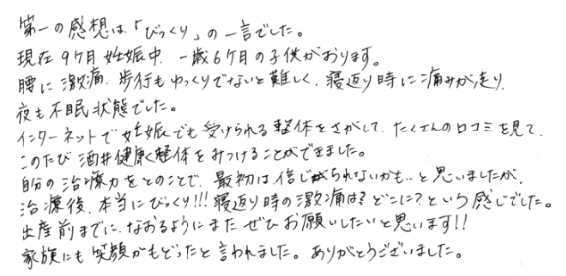 第一の感想は「びっくり」の一言でした。
現在9ヶ月妊娠中、一歳6ヶ月の子供がおります。
腰に激痛、歩行もゆっくりでないと難しく、寝返り時に痛みが走り、
夜も不眠状態でした。
インターネットで妊娠でも受けられる整体をさがして、たくさんの口コミを見て、
このたび酒井健康整体をみつけることができました。
自分の治療力をとのことで、最初は信じられないかも…と思いましたが、
治療後、本当にびっくり!!!寝返り時の激痛は?どこに?という感じでした。
出産前までに、なおるようにまた、ぜひお願いしたいと思います!!
家族にも笑顔がもどったと言われました。ありがとうございました。